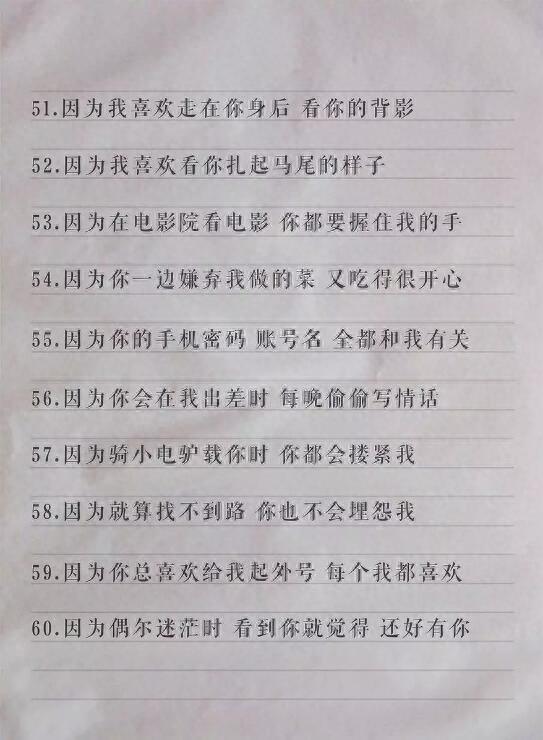 51.因为我喜欢走在你身后 看你的背影
52.因为我喜欢看你扎起马尾的样子
53.因为在电影院看电影 你都要握住我的手
54.因为你一边嫌弃我做的菜 又吃得很开心
55.因为你的手机密码 账号名 全都和我有关
56.因为你会在我出差时 每晚偷偷写情话
57.因为骑小电驴载你时 你都会搂紧我
58.因为就算找不到路 你也不会埋怨我
59.因为你总喜欢给我起外号 每个我都喜欢
60.因为偶尔迷茫时 看到你就觉得 还好有你